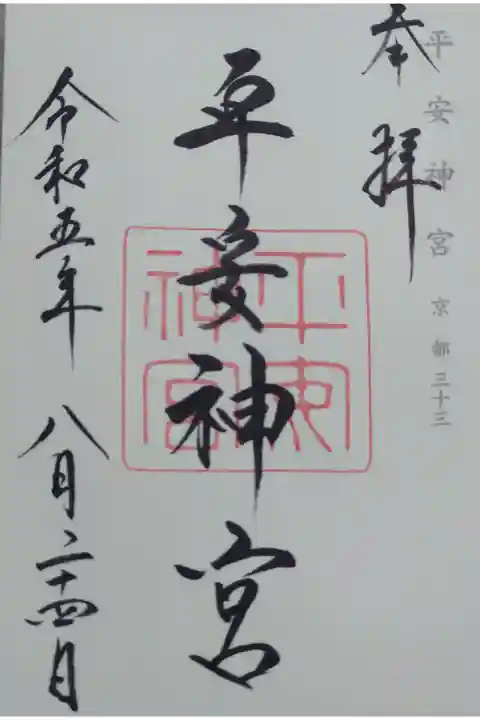 平安神宮 京都三十三
奉拝
平安神宮
平安
神宮
令和五年 八月二十四日